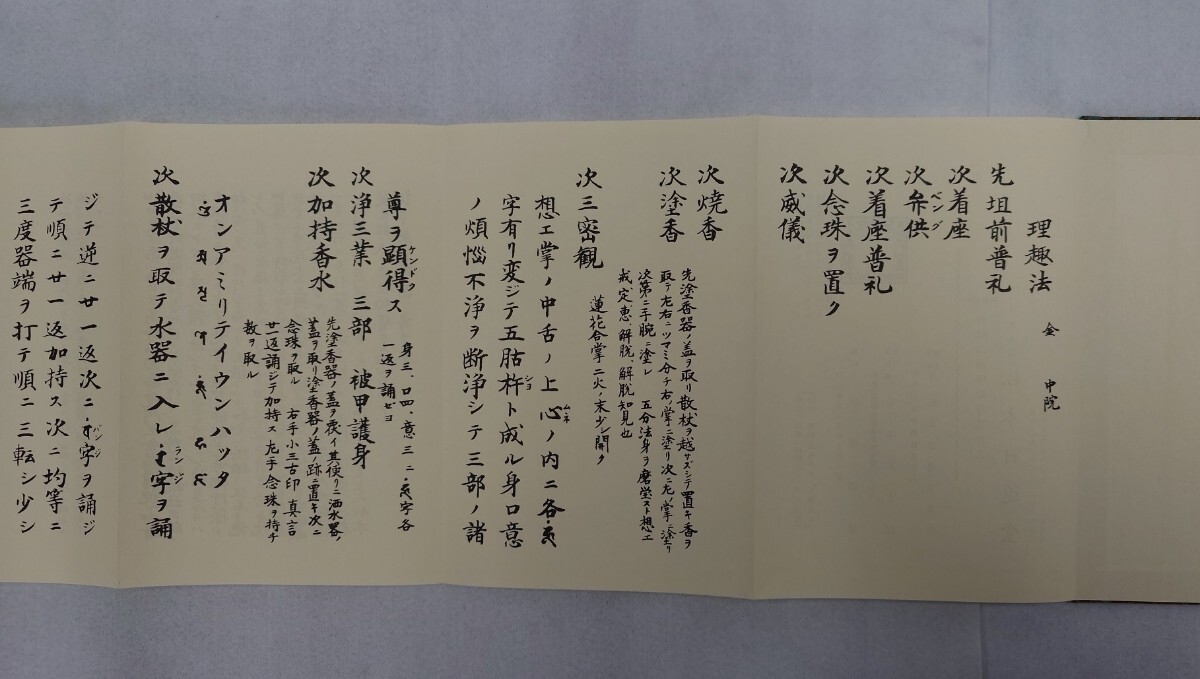 理趣法 金 中院
先坦前普礼
次着座
次弁供
ベング
次着座普礼
次念珠ヲ置ク
次威儀
次焼香
次塗香
先塗香器ノ蓋ヲ取リ散杖ヲ越サズシテ置キ香ヲ
取テ左右ニツマミ分チ右ノ掌ニ塗リ次ニ左ノ掌ニ塗リ
次第ニ手腕ニ塗レ 五分法身ヲ磨瑩スト想エ
戒、定、恵、解脱、解脱知見也
次三密観 蓮花合掌二火ノ末少シ開ク
想エ掌ノ中舌ノ上心ノ内ニ各𑖮𑖳𑖽
ムネ
字有リ変ジテ五股杵ト成ル身口意
ショ
ノ煩悩不浄ヲ断浄シテ三部ノ諸
尊ヲ顕得ス
ケンドク
身三、口四、意三ニ字各
一返ヲ誦ゼヨ
次浄三業 三部 被甲護身
次加持香水
先塗香器ノ蓋ヲ覆イ其便リニ洒水器ノ
蓋ヲ取リ塗香器ノ蓋ノ跡ニ置キ次ニ
念珠ヲ取ル 右手小三古印 真言
廿一返誦ジテ加持ス左手念珠ヲ持チ
数ヲ取ル
オンアミリテイウンハッタ
次散杖ヲ取テ水器ニ入レ字ヲ誦
ランジ
ジテ逆ニ廿一返次ニ字ヲ誦ジ
バンジ
テ順ニ廿一返加持ス次ニ均等ニ
三度器端ヲ打テ順ニ三転シ少シ